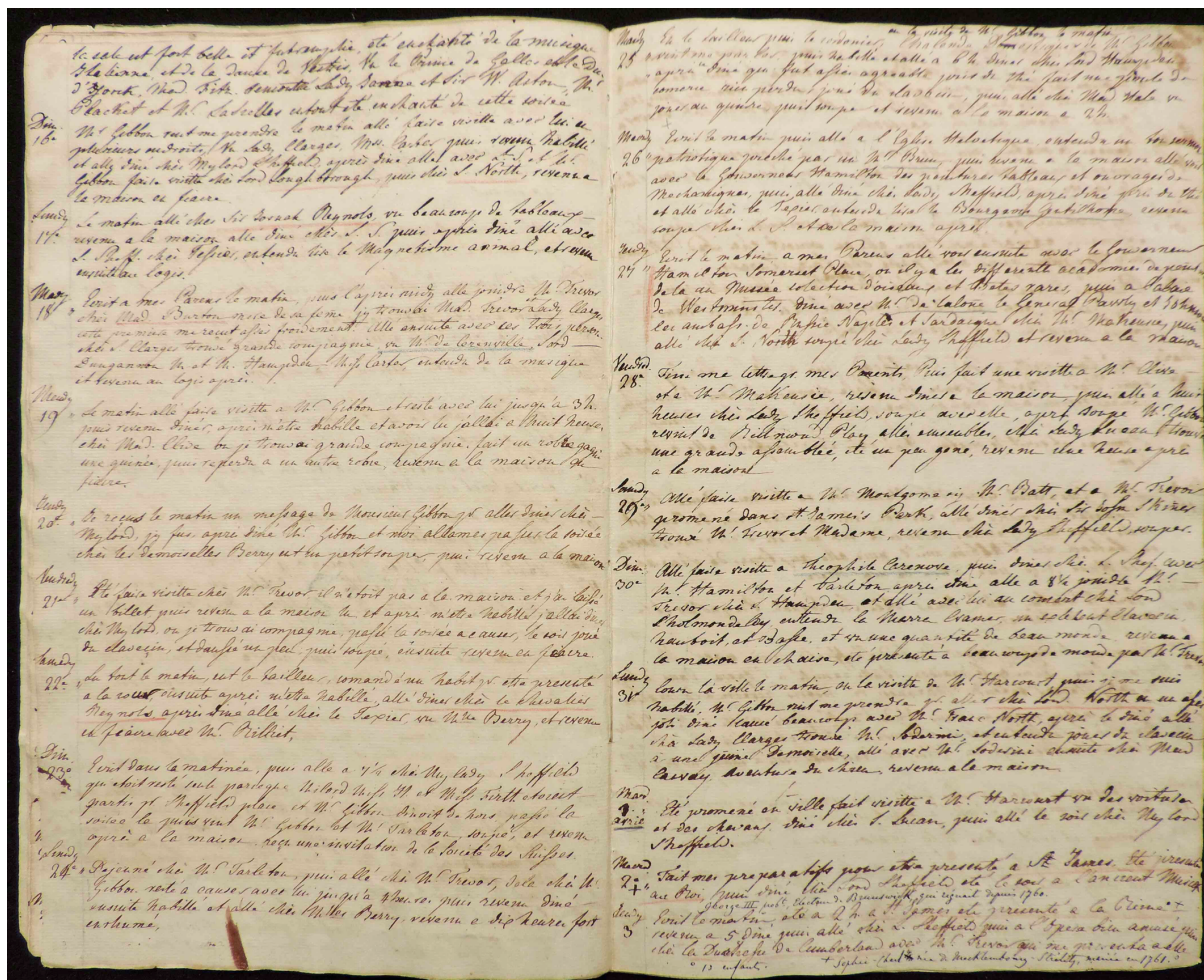 la sale est fort belle et fut remplie, été enchanté de la musique
Italienne, et de la danse de Vestris, vu le Prince de Galles et le Duc
d'York, Mad. Fitz rencontré Lady Danne et Sir W. Aston, Mr
Plachet et Mr Lascelles en tout été enchanté de cette soirée
Dim. Mr Gibbon vint me prendre le matin allé faire visitte avec lui en
16e plusieurs endroits, vu Lady Clarges, Mss. Carter puis revenu habillé
et allé diné chés Mylord Sheffield, après diné allé avec L. S. et Mr
Gibbon faire visitte chés Lord Loughborough, puis chés L. North, revenu a
la maison en fiacre.
Lundy Le matin allé chés Sir Josuah Reynols, vu beaucoup de tableaux
17e revenu a la maison allé diné chés L. S. puis après diné allé avec
L. Sheff. chés Tessier, entendu lire le Magnetisme animal, et revenu
ensuite au logis.
Mardy Ecrit a mes Parens le matin, puis l'après midy allé joindre Mr Trevor
18e chés Mad. Burton mere de sa feme j'y trouvai Mad. Trevor & Lady Clarges
cette premiere me recut assés froidement. Allé ensuite avec ces trois person.
chés L. Clarges trouvé grande compagnie, vu Mr de Grenville, Lord
Dungannon Mr et Mr Hampden Miss Carter, entendu de la musique
et revenu au logis après.
Mecdy
19e Le matin allé faire visitte a Mr Gibbon et resté avec lui jusqu'a 3 h.
puis revenu diner, après m'etre habillé et avoir lu j'allai a 8 huit heures
chés Mad. Clive ou je trouvai grande compagnie, fait un robre gagné
une guinée, puis reperdu a un autre robre, revenu a la maison en
fiacre.
Jeudy
20e Je reçus le matin un message de Monsieur Gibbon pr. aller diner chés
Mylord, j'y fus, après diné Mr Gibbon et moi allames passer la soirée
chés les demoiselles Berry et un petit souper, puis revenu a la maison
Vendredy
21e Eté faire visitte chés Mr Trevor il n'etoit pas a la maison et j'ai laissé
un billet puis revenu a la maison lu et après m'etre habillé j'allai diner
chés Mylord ou je trouvai compagnie, passé la soirée a causer, le soir joué
du clavecin, et dansé un peu, puis soupé, ensuite revenu en fiacre.
Samedy
22e Lu tout le matin, eut le tailleur, comandé un habit pr. etre presenté
a la cour ensuite après m'etre habillé, allé diner chés le Chevalier
Reynols, après diné allé chés le Texier, vu Mlle Berry, et revenu
en fiacre avec Mr Pilhet,
Dim.
23e Ecrit dans la matinée, puis allé a 7 1/2 chés Mylady Sheffield
qui etoit resté seule parceque Milord Miss H et Miss Firth etoient
partis pr. Sheffield place, et Mr Gibbon dinoit dehors, passé la
soirée la puis vint Mr Gibbon et Mr Tarleton, soupé, et revenu
après a la maison, reçu une invitation de la Societé des Suisses.
Lundy
24e Dejeuné chés Mr Tarleton, puis allé chés Mr Trevor, dela chés Mr
Gibbon resté a causer avec lui jusqu'a 4 heures, puis revenu diné
ensuite habillé et allé chés Milles Berry, revenu a dix heures fort
enrhumé,
Mardy Eu le tailleur puis le cordonier, eu la visite de Mr Gibbon le matin
25
apres diné qui fut assés agreable, pris de thé fait une partie de
comerce rien perdu, joué du clavecin, puis allé chés Mad. Hale vu
jouer au quinze, puis soupé et revenu a la maison a 2 h.
Mecdy Ecrit le matin puis allé a l'Eglise Helvetique, entendu un bon sermon
26e patriotique preché par un Mr Brun, puis revenu a la maison allé voir
avec le Gouverneur Hamilton des peintures tableaux et ouvrages de
Mechaniques, puis allé diné chés Lady Sheffield, après diné pris de thé
et allé chés le Texier, entendu lire le Bourgeois Gentilhome, revenu
soupé chés L. S. et a la maison après
Jeudy Ecrit le matin a mes Parens allé voir ensuite avec le Gouverneur
27 Hamilton Somerset Place, ou il y a les differentes academies de peint.
de la au Musée colection d'oiseaux et betes rares, puis a l'abaie
de Westminster, diné avec Mr de Calone le General Pavoly et
les ambass. de Russie Naples et Sardaigne chés Mr Makensie, puis
allé chés L. North soupé chés Lady Sheffield et revenu a la maison
Vendred.
28e Fini une lettre pr. mes Parents, Puis fait une visitte a Mr Clive
et a Mr Makensie, revenu diner a la maison, puis allé a huit
heures chés Lady Sheffield, soupé avec elle, après soupé Mr Gibbon
revint de Richmond Play, allés ensembles, chés Lady Lucan trouvé
une grande assamblée, été un peu gené, revenu une heure après
a la maison
Samedy
29e Allé faire visitte a Mr Montgomery Mr Batt, et a Mr Trevor
promené dans St James's Park, allé diner chés Sir John Skiner
trouvé Mr Trevor et Madame, revenu chés Lady Sheffield, souper.
Dim.
30e Allé faire visitte a Theophile Cazenove, puis diner chés L. Shef. avec
Mr Hamilton et Tarleton après diné allé a 8 1/2 joindre Mr
Trevor chés L. Hampden, et allé avec lui au concert chés Lord
Cholmondelay entendu la Marre Cramer, un excelent clavecin
hautbois, et Basse, et vu une quantité de beau monde, revenu a
la maison en chaise, été presenté a beaucoup de monde par Mr Trevor
Lundy
31e Couru la ville le matin, eu la visitte de Mr Harcourt, puis je me suis
habillé, Mr Gibbon vint me prendre, pr. aller chés Lord North eu un assez
joli diné causé beaucoup avec Mr Isaac North, après le diné allé
chés Lady Clarges trouvé Mr Soderini, et entendu jouer du clavecin
a une jeune Demoiselle, allé avec Mr Soderini ensuite chés Mad.
aventure du chien, revenu a la maison.
Mard.
1. avril Eté promené en ville fait visitte a Mr Harcourt vu des voitures
et des chevaux, diné chés L. Lucan, puis allé le soir chés Mylord
Sheffield.
Mecrd.
2e + Fait mes preparatifs pour etre presenté a St James. Eté presenté
au Roi, puis diné chés Lord Sheffield été le soir a l'ancient Musik
George III, pr. Electeur de Brunswick, qui regnait depuis 1760.
Jeudy Ecrit le matin, été a 2 h. a St James été presenté a la Reine +
3 revenu a 5 diné puis allé chés L. Sheffield puis a l'Opera bien amusé puis
chés la Duchesse de Cumberland avec Mr Trevor qui me presenta a elle
° 15 enfants. + Sophie Charlotte de Mecklembourg-Strélitz, mariée en 1761. °